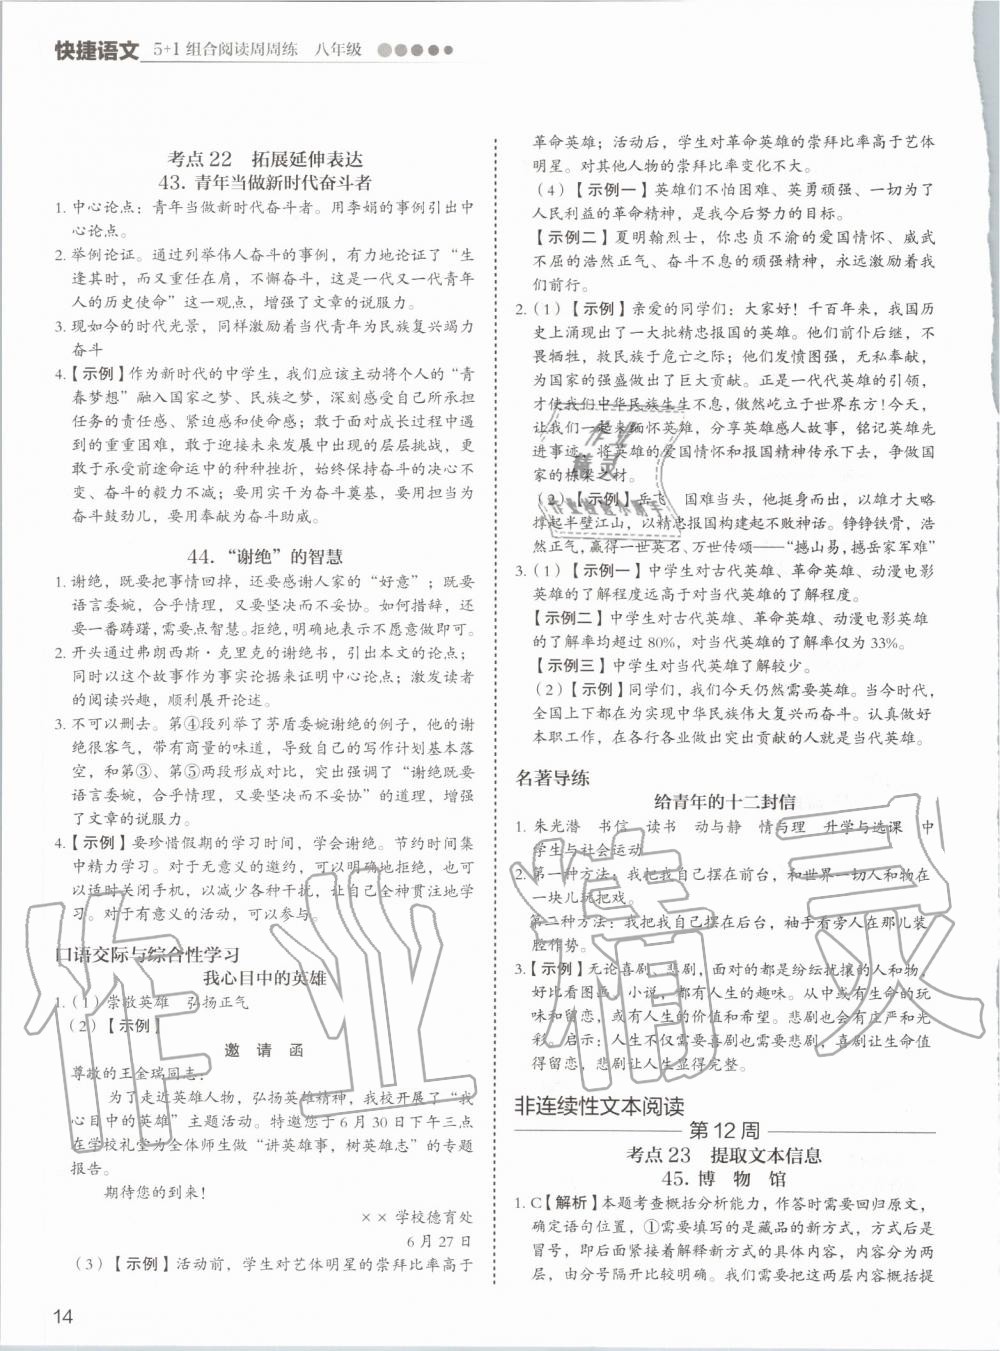 快捷语文 5+1组合阅读周周练 八年级
考点22 拓展延伸表达
43. 青年当做新时代奋斗者
1. 中心论点：青年当做新时代奋斗者。用李娟的事例引出中
心论点。
2. 举例论证。通过列举伟人奋斗的事例，有力地论证了“生
逢其时，而又重任在肩，不懈奋斗，这是一代又一代青年
人的历史使命”这一观点，增强了文章的说服力。
3. 现如今的时代光景，同样激励着当代青年为民族复兴竭力
奋斗
4.【示例】作为新时代的中学生，我们应该主动将个人的“青
春梦想”融入国家之梦、民族之梦，深刻感受自己所承担
任务的责任感、紧迫感和使命感；敢于面对成长过程中遇
到的重重困难，敢于迎接未来发展中的层层挑战，更
敢于承受前途命运中的种种挫折，始终保持奋斗的决心不
变、奋斗的毅力不减；要用实干为奋斗奠基，要用担当为
奋斗鼓劲儿，要用奉献为奋斗助威。
44. “谢绝”的智慧
1. 谢绝，既要把事情回掉，还要感谢人家的“好意”；既要
语言委婉，合乎情理，又要坚决而不妥协。如何措辞，还
要一番踌躇，需要点智慧。拒绝，明确地表示不愿意做即可。
2. 开头通过弗朗西斯·克里克的谢绝书，引出本文的论点；
同时以这个故事作为事实论据来证明中心论点；激发读者
的阅读兴趣，顺利展开论述。
3. 不可以删去。第④段列举了茅盾委婉谢绝的例子，他的谢
绝很客气，带有商量的味道，导致自己的写作计划基本落
空，和第③、第⑤两段形成对比，突出强调了“谢绝既要
语言委婉，合乎情理，又要坚决而不妥协”的道理，增强
了文章的说服力。
4.【示例】要珍惜假期的学习时间，学会谢绝。节约时间集
中精力学习。对于无意义的邀约，可以明确地拒绝，也可
以适时关闭手机，以减少各种干扰，让自己全神贯注地学
习。对于有意义的活动，可以参与。
口语交际与综合性学习
我心目中的英雄
1.（1）崇敬英雄 弘扬正气
（2）【示例】
邀 请 函
尊敬的王金瑞同志：
为了走近英雄人物，弘扬英雄精神，我校开展了“我
心目中的英雄”主题活动。特邀您于6月30日下午三点
在学校礼堂为全体师生做“讲英雄事，树英雄志”的专题
报告。
期待您的到来！
××学校德育处
6月27日
（3）【示例】活动前，学生对艺体明星的崇拜比率高于
14
革命英雄；活动后，学生对革命英雄的崇拜比率高于艺体
明星。对其他人物的崇拜比率变化不大。
（4）【示例一】英雄们不怕困难、英勇顽强、一切为了
人民利益的革命精神，是我今后努力的目标。
【示例二】夏明翰烈士，你忠贞不渝的爱国情怀、威武
不屈的浩然正气、奋斗不息的顽强精神，永远激励着我
们前行。
2.（1）【示例】亲爱的同学们：大家好！千百年来，我国历
史上涌现出了一大批精忠报国的英雄。他们前仆后继，不
畏牺牲，救民族于危亡之际；他们发愤图强，无私奉献，
为国家的强盛做出了巨大贡献。正是一代代英雄的引领，
才使我们中华民族生生不息，傲然屹立于世界东方！今天，
让我们一起来缅怀英雄，分享英雄感人故事，铭记英雄先
进事迹，将英雄的爱国情怀和报国精神传承下去，争做国
家的栋梁之材。
（2）【示例】岳飞 国难当头，他挺身而出，以雄才大略
撑起半壁江山，以精忠报国构建起不败神话。铮铮铁骨，浩
然正气，赢得一世英名、万世传颂——“撼山易，撼岳家军难”
3.（1）【示例一】中学生对古代英雄、革命英雄、动漫电影
英雄的了解程度远高于对当代英雄的了解程度。
【示例二】中学生对古代英雄、革命英雄、动漫电影英雄
的了解率均超过80%，对当代英雄的了解率仅为33%。
【示例三】中学生对当代英雄了解较少。
（2）【示例】同学们，我们今天仍然需要英雄。当今时代，
全国上下都在为实现中华民族伟大复兴而奋斗。认真做好
本职工作，在各行各业做出突出贡献的人就是当代英雄。
名著导练
给青年的十二封信
1. 朱光潜 书信 读书 动与静 情与理 升学与选课 中
学生与社会运动
2. 第一种方法：我把我自己摆在前台，和世界一切人和物在
一块儿玩把戏。
第二种方法：我把我自己摆在后台，袖手看旁人在那儿装
腔作势。
3.【示例】无论喜剧、悲剧，面对的都是纷纭扰攘的人和物，
好比看图画、小说，都有人生的趣味。从中或有生命的玩
味和留恋，或有人生的价值和希望。悲剧也会有庄严和光
彩。启示：人生不仅需要喜剧也需要悲剧，喜剧让生命值
得留恋，悲剧让人生显得完整。
非连续性文本阅读
第12周
考点23 提取文本信息
45. 博 物 馆
1. C【解析】本题考查概括分析能力，作答时需要回归原文，
确定语句位置，①需要填写的是藏品的新方式，方式后是
冒号，即后面紧接着解释新方式的具体内容，内容分为两
层，由分号隔开比较明确。我们需要把这两层内容概括提
作业精灵
作业
精灵